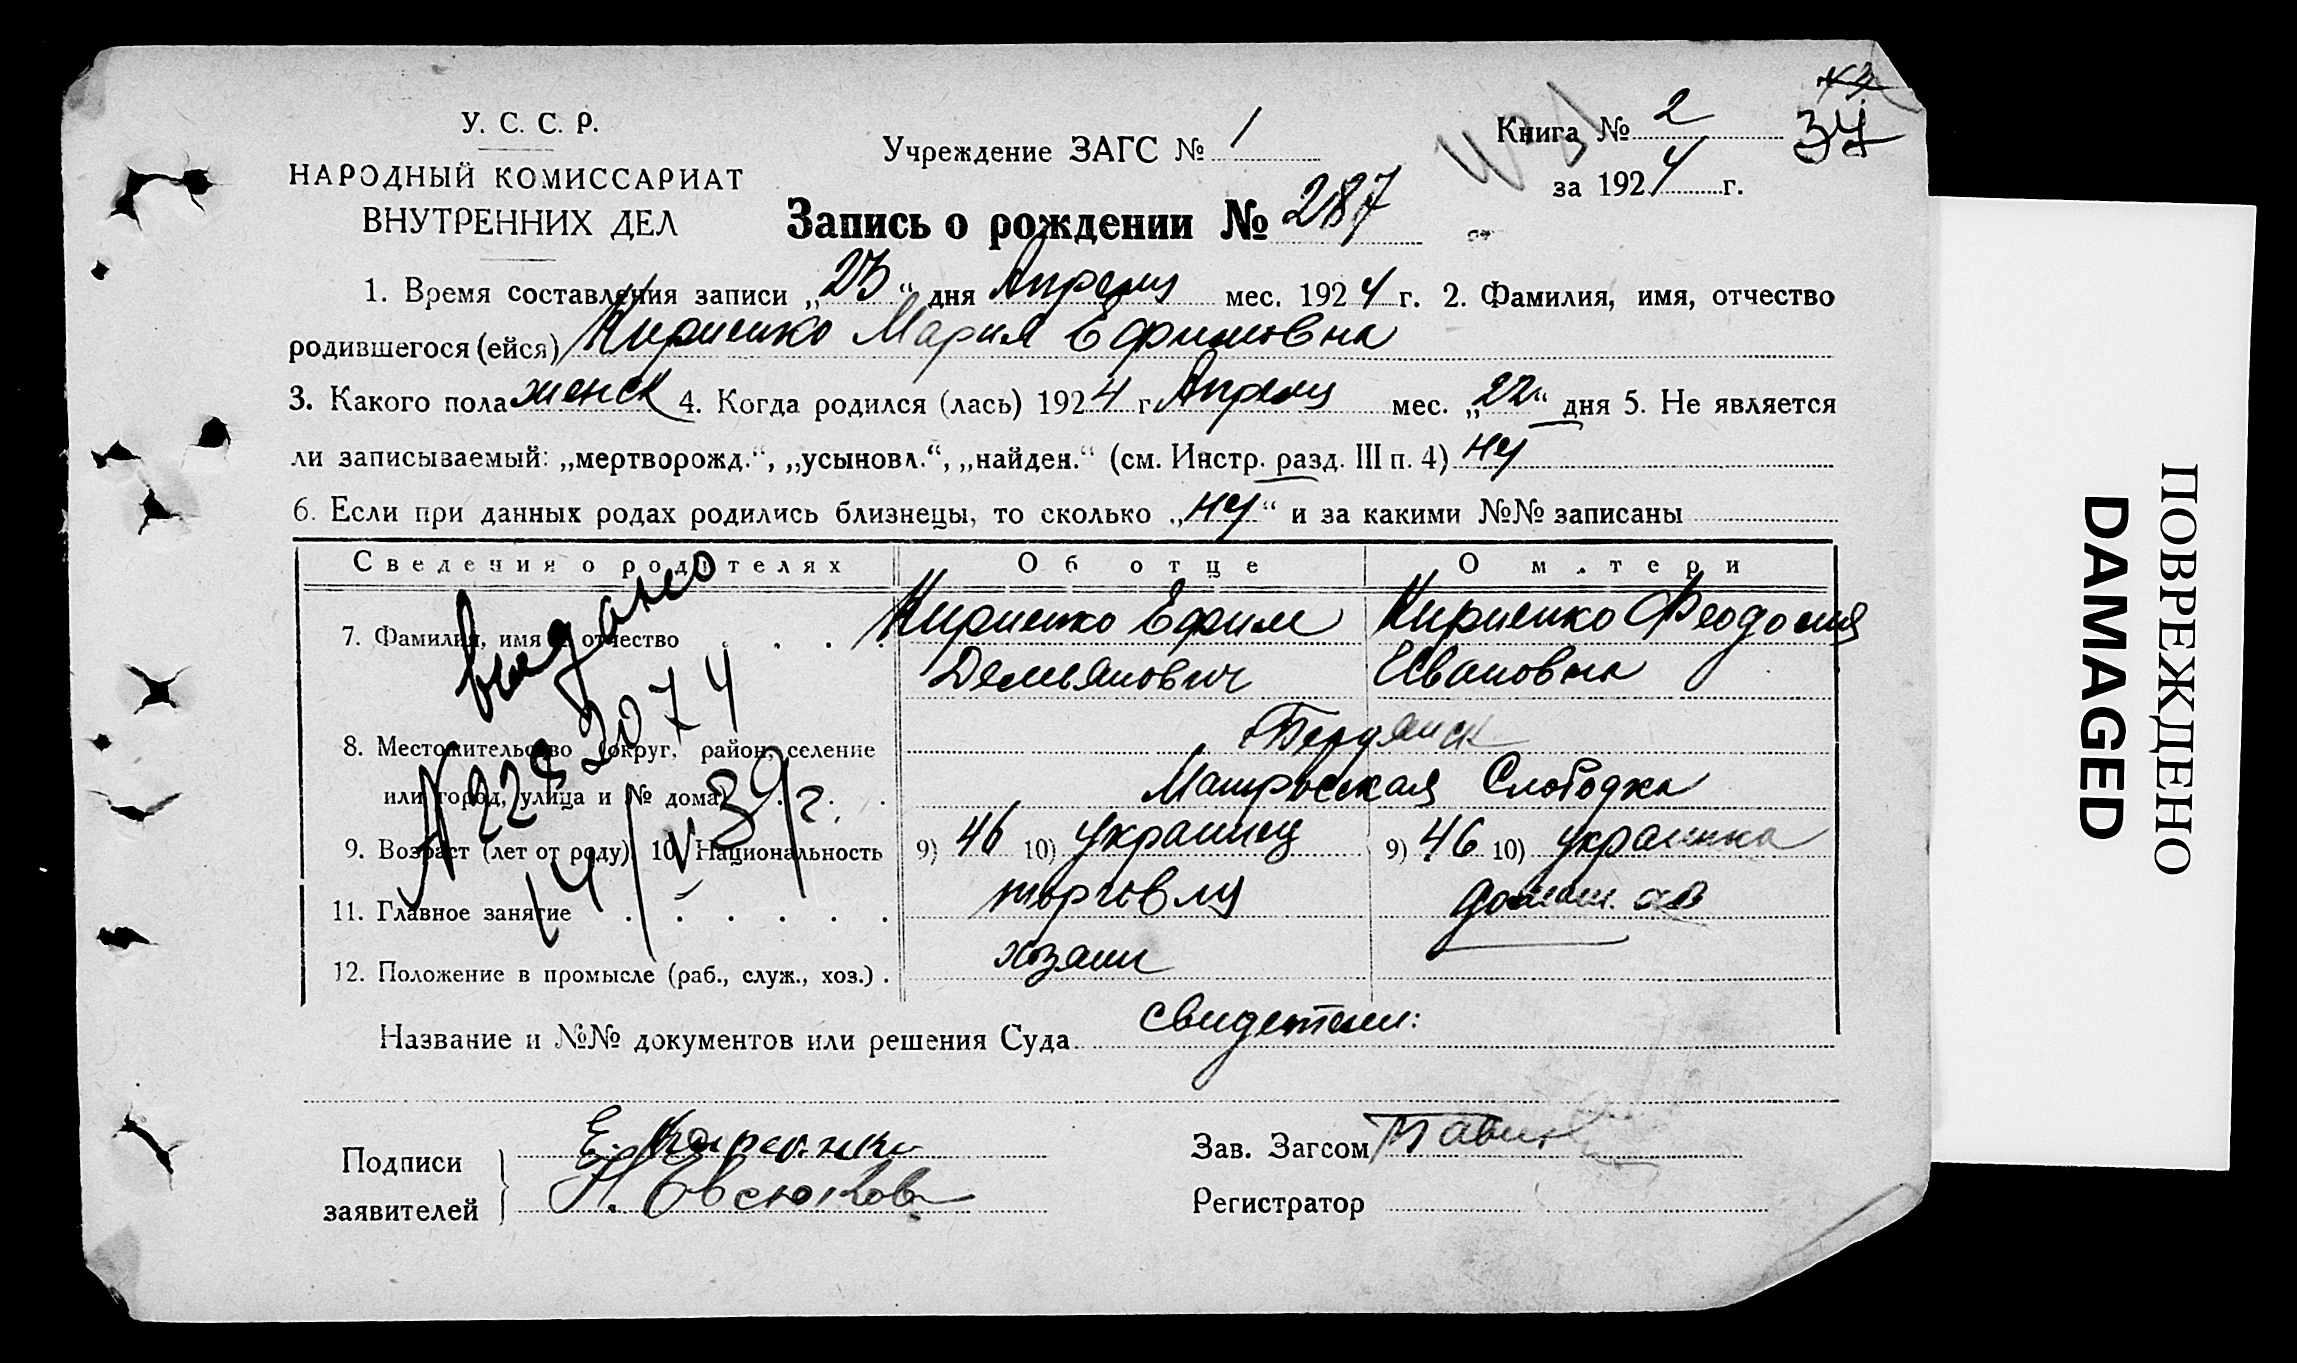 У. С. С. Р.
НАРОДНЫЙ КОМИССАРИАТ
ВНУТРЕННИХ ДЕЛ
Учреждение ЗАГС № 1
Книга № 2
34
за 1924 г.
Запись о рождении № 287
1. Время составления записи „23“ дня Апреля мес. 1924 г. 2. Фамилия, имя, отчество
родившегося (ейся) Кириенко Мария Ефимовна
3. Какого пола женск 4. Когда родился (лась) 1924 г. Апреля мес. „22“ дня 5. Не является
ли записываемый: „мертворожд.“, „усыновл.“, „найден.“ (см. Инстр. разд. III п. 4) нет
6. Если при данных родах родились близнецы, то сколько „нет“ и за какими №№ записаны
Сведения о родителях Об отце О матери
7. Фамилия, имя и отчество Кириенко Ефим Кириенко Феодосия
Демьянович Ивановна
8. Местожительство (округ, район, селение Бердянск
или город, улица и № дома) Слободка
9. Возраст (лет от роду) 10. Национальность 9) 46 10) украинец 9) 46 10) украинка
11. Главное занятие торговля домаш.
12. Положение в промысле (раб., служ., хоз.) хозяин
выдано
14/V 39 г.
Название и №№ документов или решения Суда свидетели:
Подписи
заявителей
Е. Кириенко
Н. Евсюков
Зав. Загсом
Регистратор
ПОВРЕЖДЕНО
DAMAGED